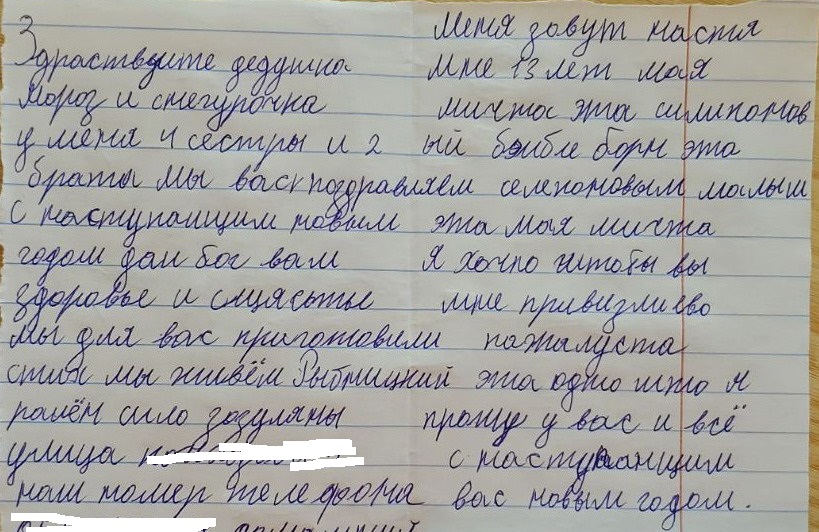 Здраствуите дедушка
Мороз и снегурочка
у меня 4 сестры и 2
браты мы васк поздравляем
с наступаищим новым
годом дай бог вам
здоровье и сщясьтье
мы для вас приготовили
стих мы живём Рыбницкий
раён сило зозуляны
улица
наш номер телефона
Меня зовут настя
мне 13 лет мая
мичта эта силиконов
ый бэибле борн эта
селеконовым малыш
эта мая мичта
я хочю штобы вы
мне привизли ево
пожалуста
эта одно што я
прошу у вас и всё
с наступаищим
вас новым годом.